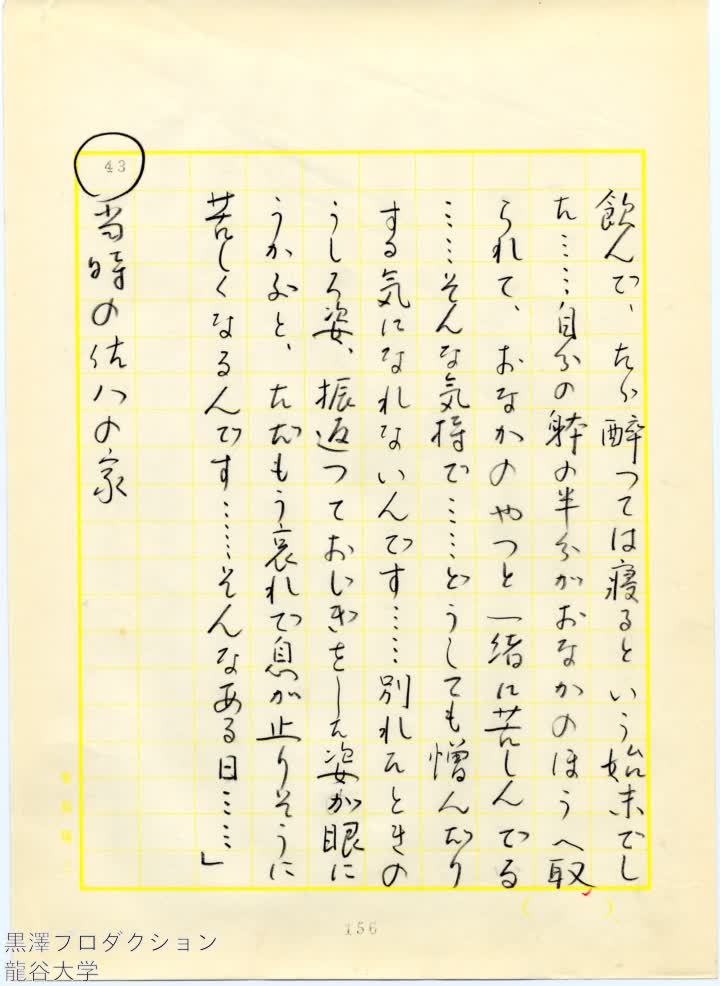 飲んで、たゞ醉つては寝るという始末でし
た……自分の躰の半分がおなかのほうへ取
られて、おなかのやつと一緒に苦しんでる
……そんな気持で……どうしても憎んだり
する気になれないんです……別れたときの
うしろ姿、振返つておじぎをした姿が眼に
うかぶと、たゞもう哀れで息が止りそうに
苦しくなるんです……そんなある日……」
43
当時の佐八の家
156
黒澤プロダクション
龍谷大学